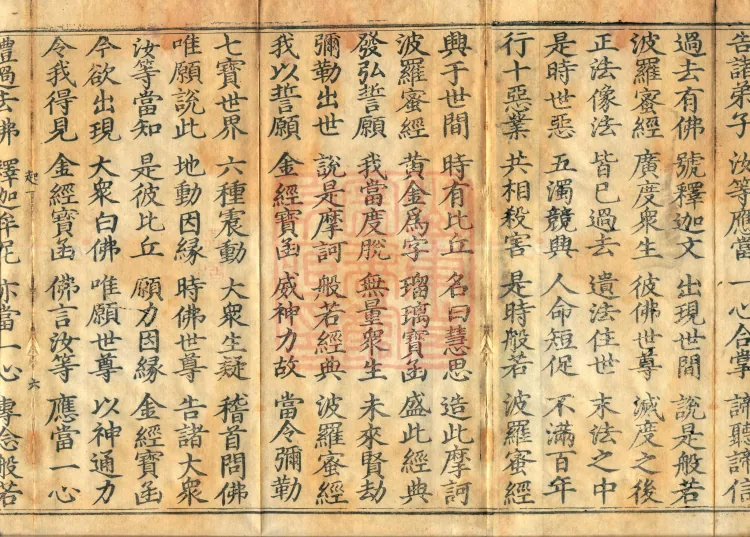 告諸弟子 汝等應當 一心合掌 諦聽諦信
過去有佛 號釋迦文 出現世間 說是般若
波羅蜜經 廣度衆生 彼佛世尊 滅度之後
正法像法 皆已過去 遺法住世 末法之中
是時世惡 五濁競興 人命短促 不滿百年
行十惡業 共相殺害 是時般若 波羅蜜經
興于世間 時有比丘 名曰慧思 造此摩訶
波羅蜜經 黃金爲字 瑠璃寶函 盛此經典
發弘誓願 我當度脫 無量衆生 未來賢劫
彌勒出世 說是摩訶 般若經典 波羅蜜經
我以誓願 金經寶函 威神力故 當令彌勒
七寶世界 六種震動 大衆生疑 稽首問佛
唯願說此 地動因緣 時佛世尊 告諸大衆
汝等當知 是彼比丘 願力因緣 金經寶函
今欲出現 大衆白佛 唯願世尊 以神通力
令我得見 金經寶函 佛言汝等 應當一心
六
禮過去佛 釋迦牟尼 亦當一心 專念般若